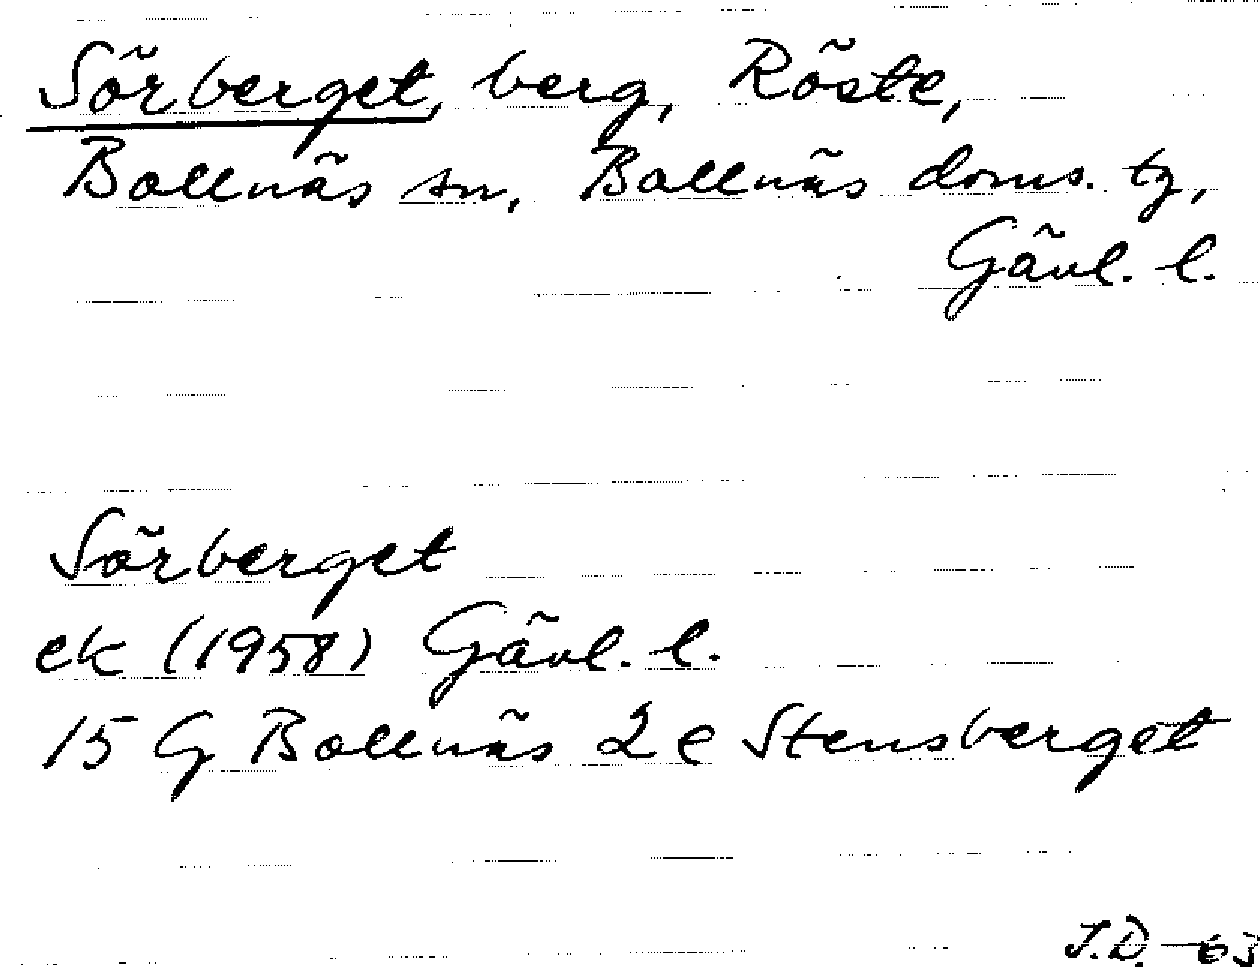 Sörberget, berg, Röste,
Bollnäs sn, Bollnäs doms. tg,
Gävl. l.
Sörberget
ek (1958) Gävl. l.
15 G Bollnäs 2e Stensberget
J.D. -63